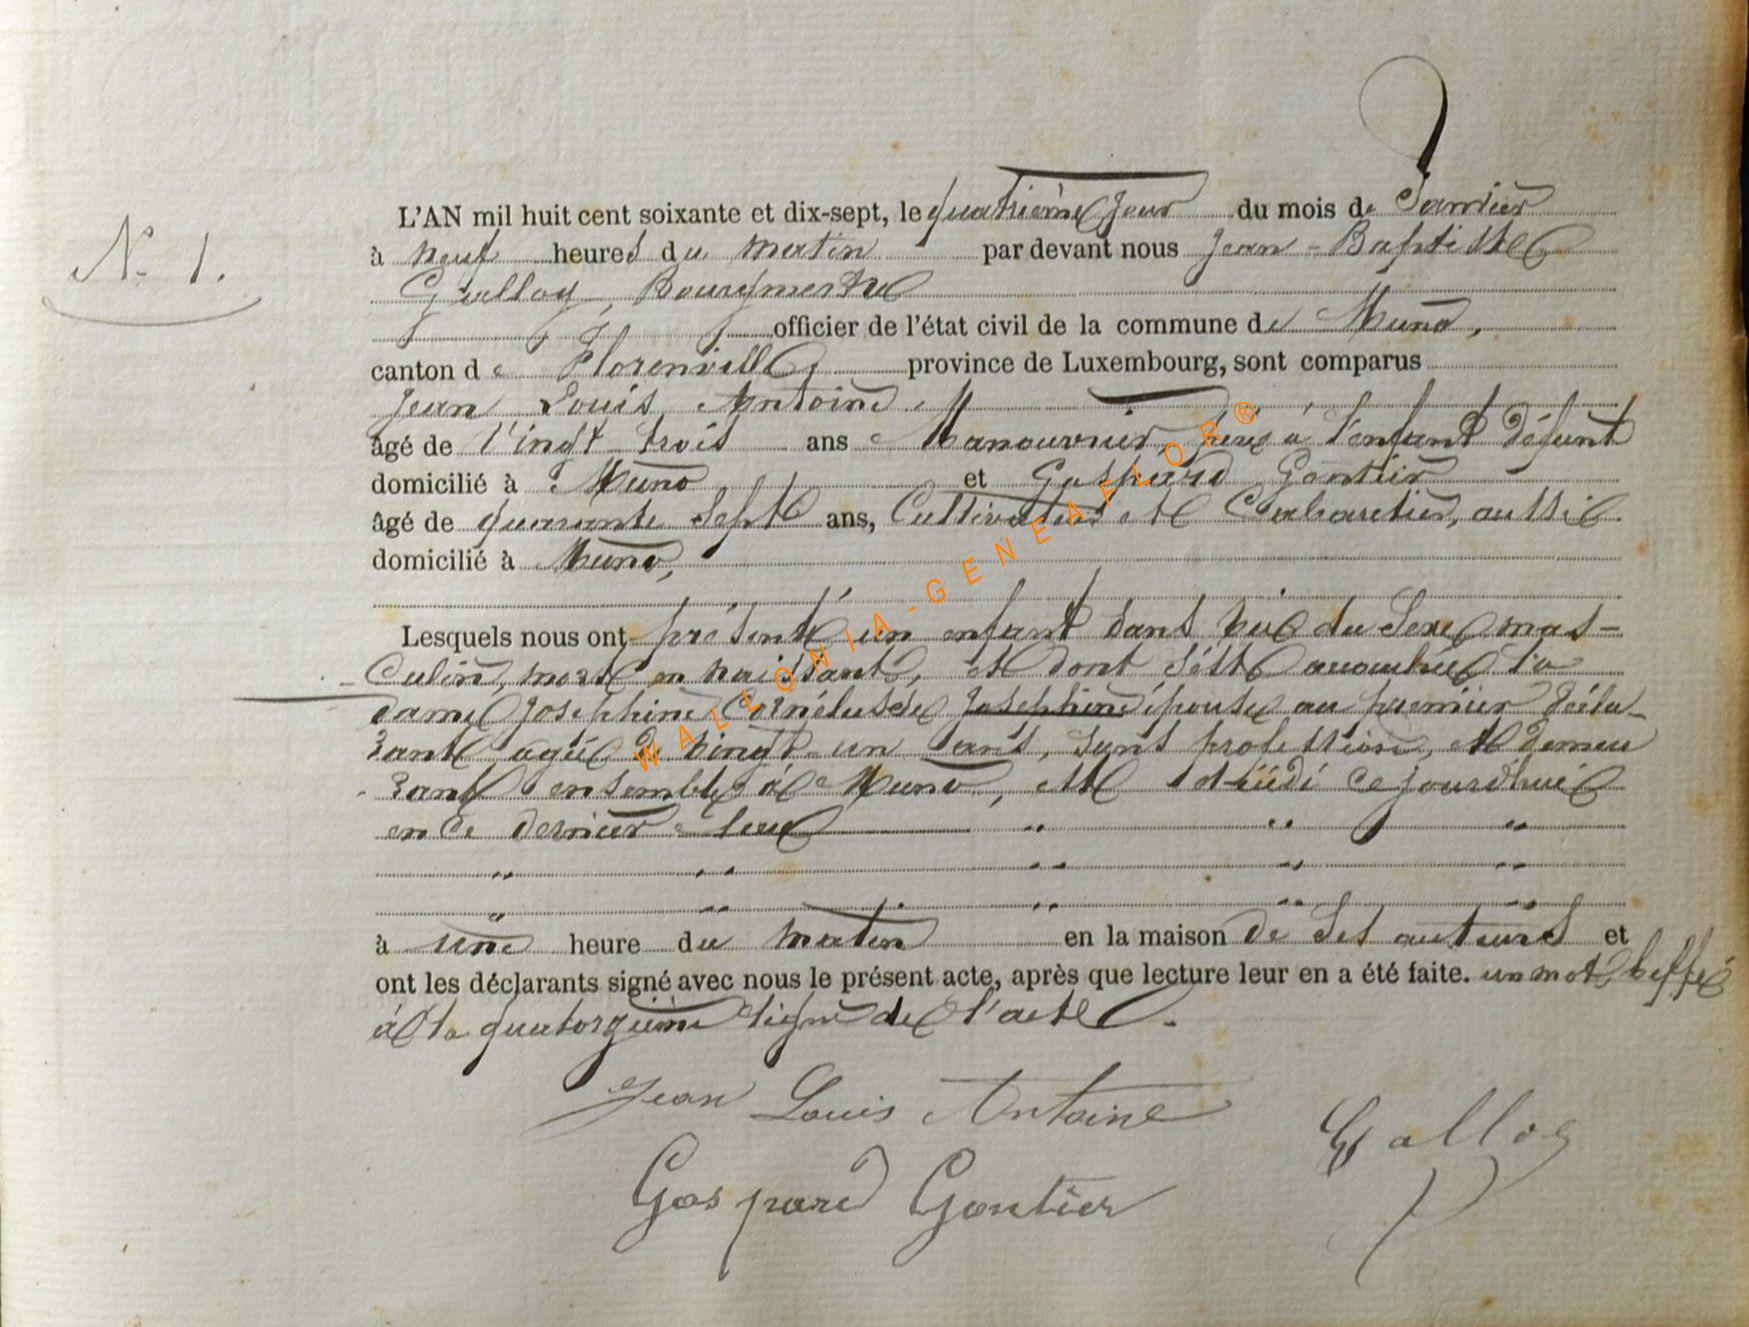 N° 1.
L'AN mil huit cent soixante et dix-sept, le quatrième jour du mois de Janvier
à neuf heures du matin par devant nous Jean-Baptiste
Galloy, Bourgmestre
officier de l'état civil de la commune de Muno,
canton de Florenville, province de Luxembourg, sont comparus
Jean Louis Antoine
âgé de Vingt trois ans Manouvrier, père à l'enfant défunt
domicilié à Muno et Gaspard Gontier
âgé de quarante Sept ans, Cultivateur et Cabaretier, aussi
domicilié à Muno,
Lesquels nous ont présenté un enfant sans vie du Sexe mas-
culin, mort en naissant, et dont s'est accouchée la
dame Joséphine Cornélussée Joséphine épouse au premier décla-
rant agée de vingt un ans, sans profession, et demeu
rant ensemble à Muno, et ce jourd'hui
en ce dernier lieu " " "
" " " " "
" " " " "
à une heure du matin en la maison de Ses auteurs et
ont les déclarants signé avec nous le présent acte, après que lecture leur en a été faite. un mot biffé
à la quatorzième ligne de l'acte.
Jean Louis Antoine
Galloy
Gaspard Gontier
WALLONIA-GENEAFLOR®